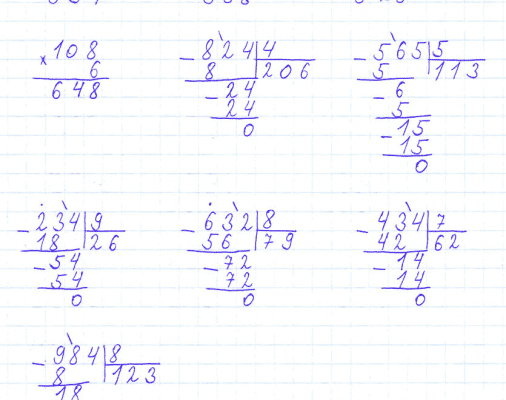 × 108
6
648
- 824 | 4
8 | 206
- 24
24
0
- 565 | 5
5 | 113
- 6
5
- 15
15
0
- 234 | 9
18 | 26
- 54
54
0
- 632 | 8
56 | 79
- 72
72
0
- 434 | 7
42 | 62
- 14
14
0
- 984 | 8
8 | 123
18